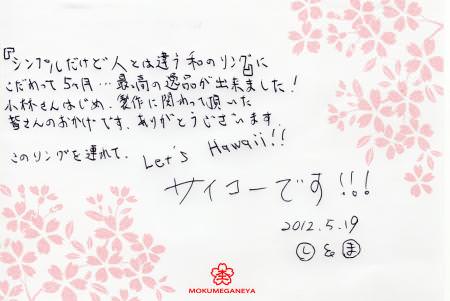 『シンプルだけど人とは違う和のリング』に
こだわって5ヶ月…最高の逸品が出来ました!
小林さんはじめ、製作に関わって頂いた
皆さんのおかげです。ありがとうございます。
このリングを連れて、Let's Hawaii!!
サイコーです!!!
2012.5.19
し & ま
MOKUMEGANEYA